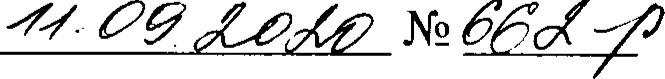 11.09.2020 № 662-р